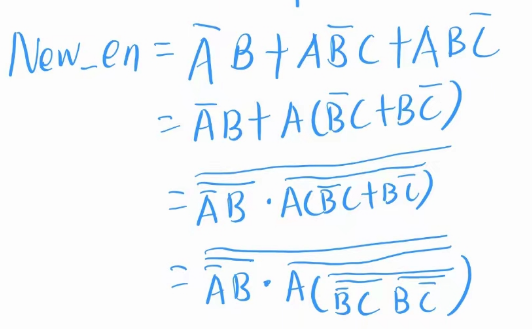 New_en = A̅ B + A B̅ C + A B C̅
= A̅ B + A ( B̅ C + B C̅ )
= \overline{\overline{\overline{A} B} · \overline{A ( \overline{B} C + B \overline{C} )}}
= \overline{\overline{\overline{A} B} · \overline{A ( \overline{\overline{\overline{B} C} \overline{B \overline{C}}} )}}